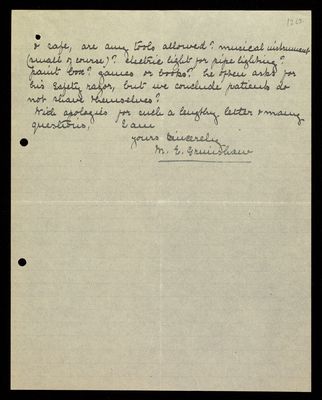 & safe, are any tools allowed? musical instrument
(small of course)? electric light for pipe lighting?
paint box? games or books? he often asks for
his safety razor, but we conclude patients do
not shave themselves?
With apologies for such a lengthy letter & many
questions, I am
yours sincerely
M. E.